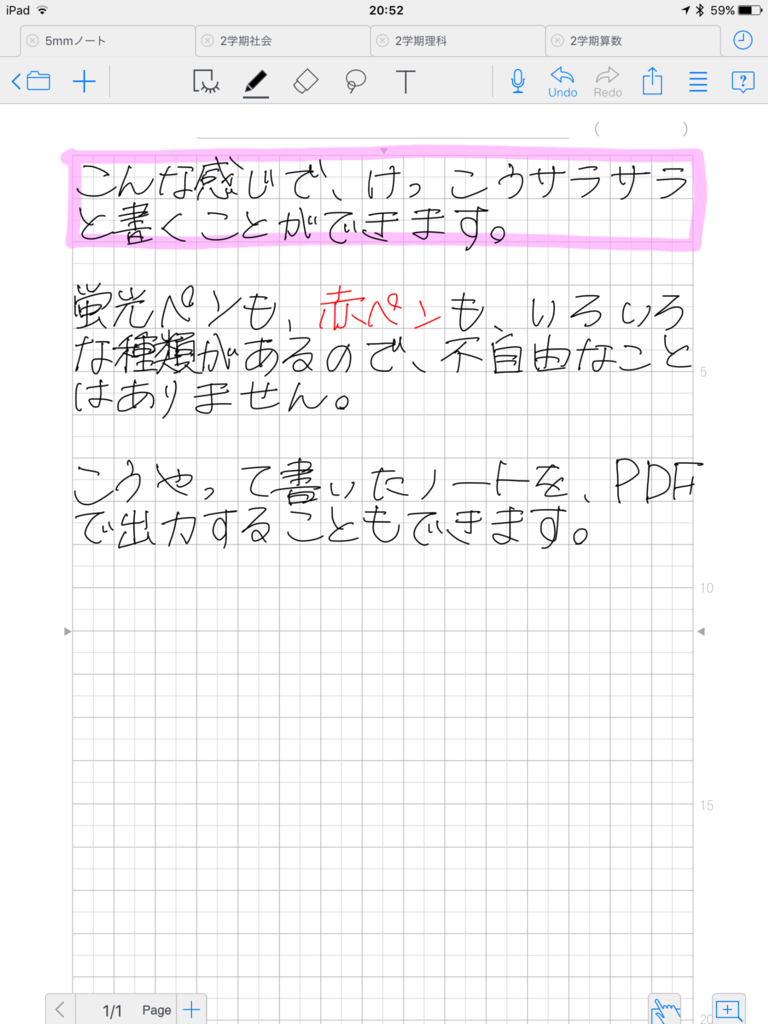 iPad 20:52 59%
5mmノート 2学期社会 2学期理科 2学期算数
T Undo Redo ?
( )
こんな感じで、けっこうサラサラ
と書くことができます。
蛍光ペンも、赤ペンも、いろいろ
な種類があるので、不自由なこと
はありません。
5
こうやって書いたノートを、PDF
で出力することもできます。
10
15
20
1/1 Page